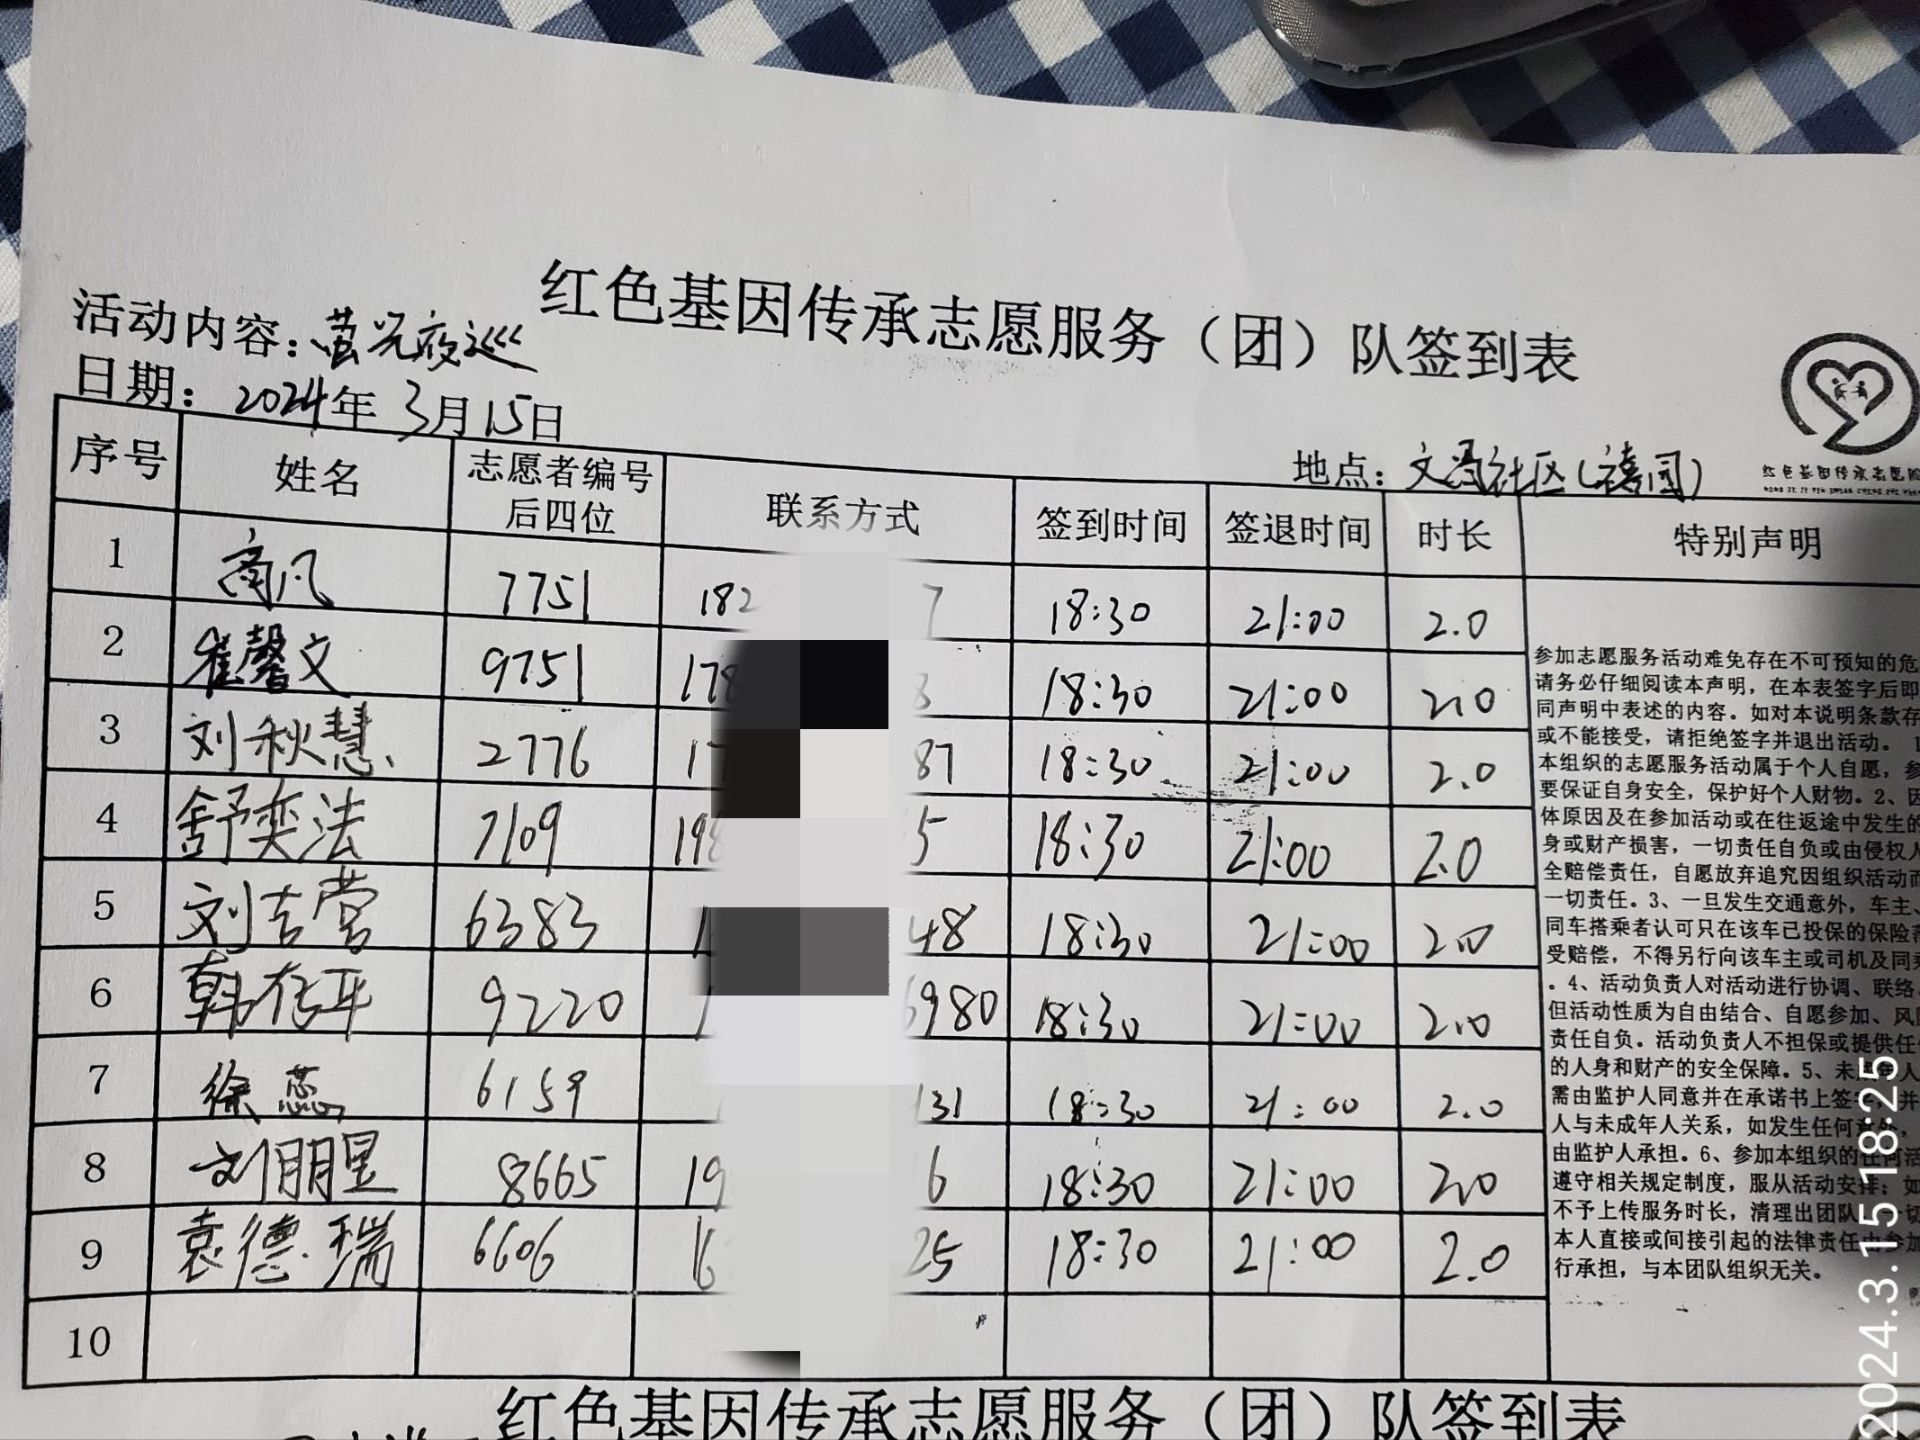 红色基因传承志愿服务（团）队签到表
活动内容：萤光夜巡
日期：2024年3月15日
地点：文冯社区(禧园)
红色基因传承志愿服
序号 姓名 志愿者编号后四位 联系方式 签到时间 签退时间 时长 特别声明
1 商凡 7751 182 7 18:30 21:00 2.0
2 崔馨文 9751 178 8 18:30 21:00 2.0
3 刘秋慧 2776 17 87 18:30 21:00 2.0
4 舒奕法 7109 198 5 18:30 21:00 2.0
5 刘吉营 6383 1 48 18:30 21:00 2.0
6 韩存平 9220 1 6980 18:30 21:00 2.0
7 徐蕊 6159 131 18:30 21:00 2.0
8 刘朋昱 8665 19 6 18:30 21:00 2.0
9 袁德瑞 6606 1 25 18:30 21:00 2.0
10
参加志愿服务活动难免存在不可预知的危
请务必仔细阅读本声明，在本表签字后即
同声明中表述的内容。如对本说明条款存
或不能接受，请拒绝签字并退出活动。1
本组织的志愿服务活动属于个人自愿，参
要保证自身安全，保护好个人财物。2、因
体原因及在参加活动或在往返途中发生的
身或财产损害，一切责任自负或由侵权人
全赔偿责任，自愿放弃追究因组织活动而
一切责任。3、一旦发生交通意外，车主、
同车搭乘者认可只在该车已投保的保险范
受赔偿，不得另行向该车主或司机及同乘
。4、活动负责人对活动进行协调、联络，
但活动性质为自由结合、自愿参加、风险
责任自负。活动负责人不担保或提供任何
的人身和财产的安全保障。5、未成年人
需由监护人同意并在承诺书上签字，并
人与未成年人关系，如发生任何意外，
由监护人承担。6、参加本组织的任何活
遵守相关规定制度，服从活动安排；如
不予上传服务时长，清理出团队，一切
本人直接或间接引起的法律责任由参加
行承担，与本团队组织无关。
2024.3.15 18:25
红色基因传承志愿服务（团）队签到表